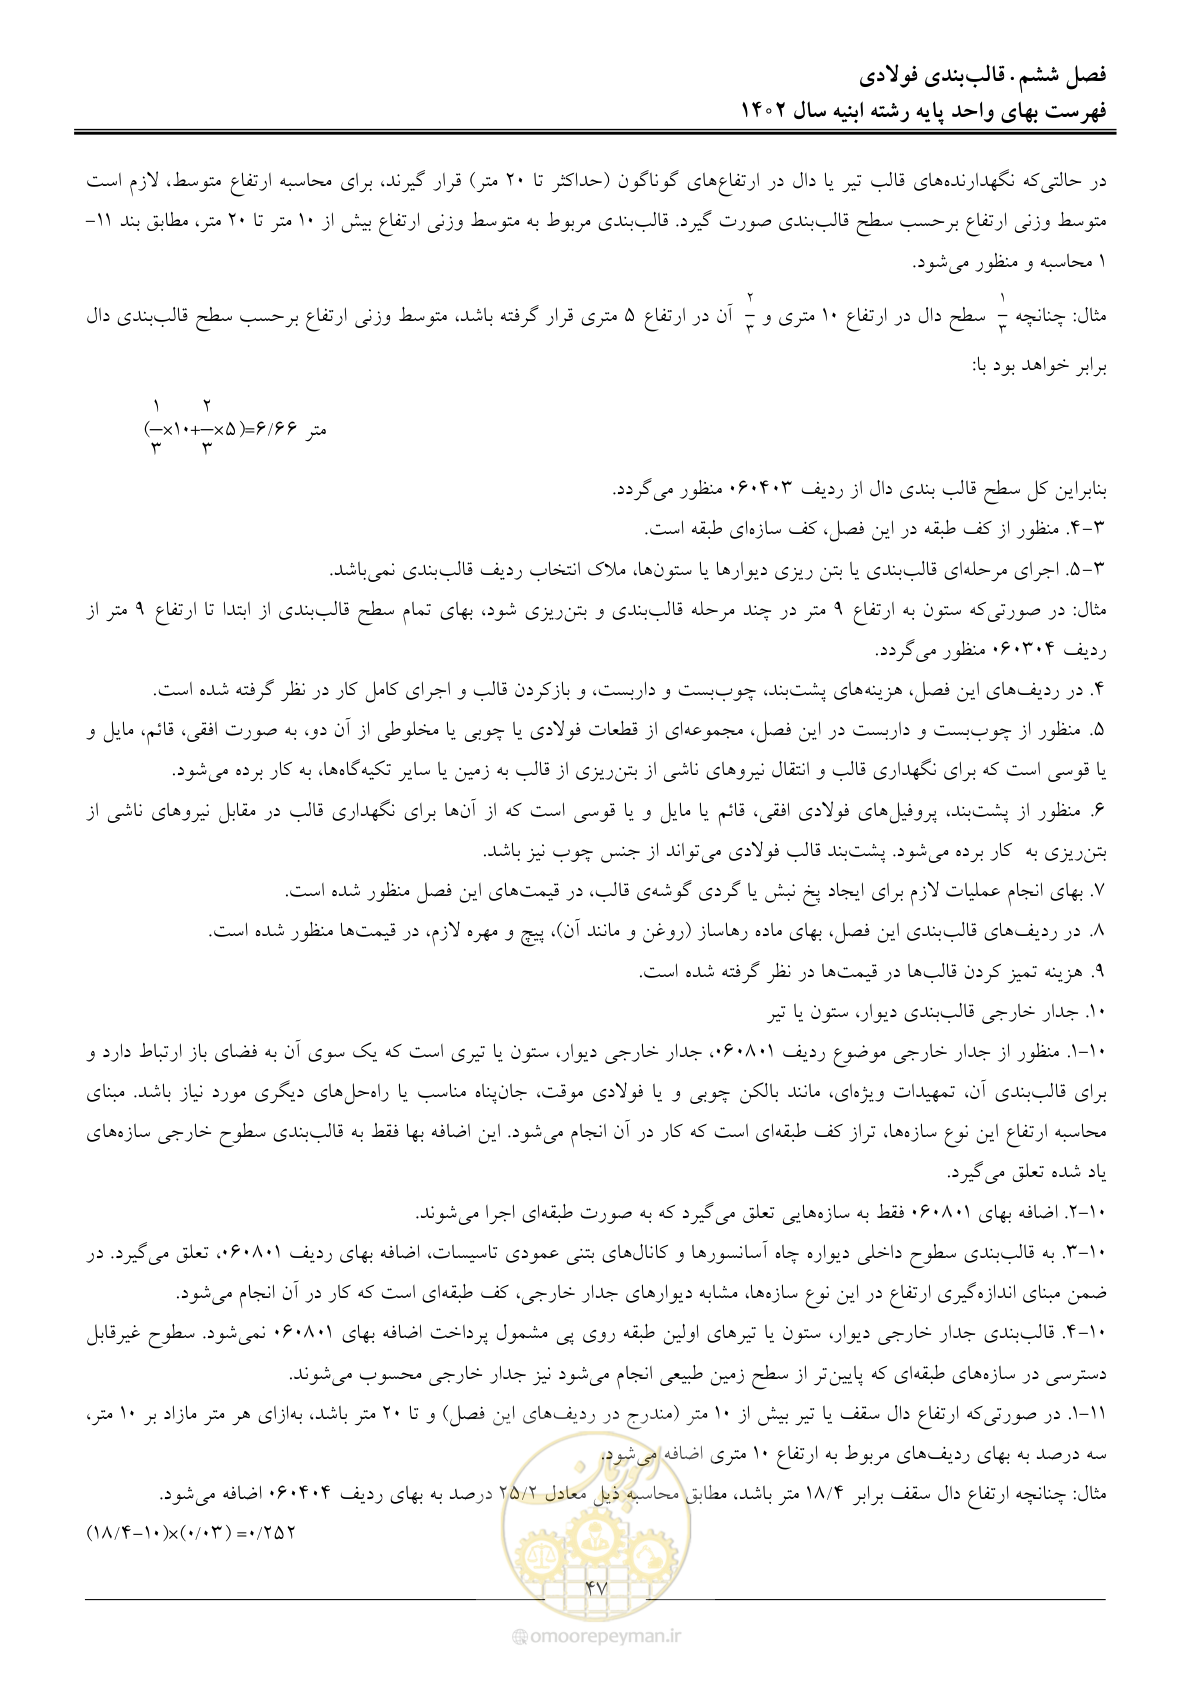 فصل ششم. قالب‌بندی فولادی
فهرست بهای واحد پایه رشته ابنیه سال ۱۴۰۲
در حالتی‌که نگهدارنده‌های قالب تیر یا دال در ارتفاع‌های گوناگون (حداکثر تا ۲۰ متر) قرار گیرند، برای محاسبه ارتفاع متوسط، لازم است
متوسط وزنی ارتفاع برحسب سطح قالب‌بندی صورت گیرد. قالب‌بندی مربوط به متوسط وزنی ارتفاع بیش از ۱۰ متر تا ۲۰ متر، مطابق بند ۱۱-
۱ محاسبه و منظور می‌شود.
مثال: چنانچه ۱/۳ سطح دال در ارتفاع ۱۰ متری و ۲/۳ آن در ارتفاع ۵ متری قرار گرفته باشد، متوسط وزنی ارتفاع برحسب سطح قالب‌بندی دال
برابر خواهد بود با:
(۱/۳×۱۰+۲/۳×۵)=۶/۶۶ متر
بنابراین کل سطح قالب بندی دال از ردیف ۰۶۰۴۰۳ منظور می‌گردد.
۳-۴. منظور از کف طبقه در این فصل، کف سازه‌ای طبقه است.
۳-۵. اجرای مرحله‌ای قالب‌بندی یا بتن ریزی دیوارها یا ستون‌ها، ملاک انتخاب ردیف قالب‌بندی نمی‌باشد.
مثال: در صورتی‌که ستون به ارتفاع ۹ متر در چند مرحله قالب‌بندی و بتن‌ریزی شود، بهای تمام سطح قالب‌بندی از ابتدا تا ارتفاع ۹ متر از
ردیف ۰۶۰۳۰۴ منظور می‌گردد.
۴. در ردیف‌های این فصل، هزینه‌های پشت‌بند، چوب‌بست و داربست، و بازکردن قالب و اجرای کامل کار در نظر گرفته شده است.
۵. منظور از چوب‌بست و داربست در این فصل، مجموعه‌ای از قطعات فولادی یا چوبی یا مخلوطی از آن دو، به صورت افقی، قائم، مایل و
یا قوسی است که برای نگهداری قالب و انتقال نیروهای ناشی از بتن‌ریزی از قالب به زمین یا سایر تکیه‌گاه‌ها، به کار برده می‌شود.
۶. منظور از پشت‌بند، پروفیل‌های فولادی افقی، قائم یا مایل و یا قوسی است که از آن‌ها برای نگهداری قالب در مقابل نیروهای ناشی از
بتن‌ریزی به کار برده می‌شود. پشت‌بند قالب فولادی می‌تواند از جنس چوب نیز باشد.
۷. بهای انجام عملیات لازم برای ایجاد پخ نبش یا گردی گوشه‌ی قالب، در قیمت‌های این فصل منظور شده است.
۸. در ردیف‌های قالب‌بندی این فصل، بهای ماده رهاساز (روغن و مانند آن)، پیچ و مهره لازم، در قیمت‌ها منظور شده است.
۹. هزینه تمیز کردن قالب‌ها در قیمت‌ها در نظر گرفته شده است.
۱۰. جدار خارجی قالب‌بندی دیوار، ستون یا تیر
۱۰-۱. منظور از جدار خارجی موضوع ردیف ۰۶۰۸۰۱، جدار خارجی دیوار، ستون یا تیری است که یک سوی آن به فضای باز ارتباط دارد و
برای قالب‌بندی آن، تمهیدات ویژه‌ای، مانند بالکن چوبی و یا فولادی موقت، جان‌پناه مناسب یا راه‌حل‌های دیگری مورد نیاز باشد. مبنای
محاسبه ارتفاع این نوع سازه‌ها، تراز کف طبقه‌ای است که کار در آن انجام می‌شود. این اضافه بها فقط به قالب‌بندی سطوح خارجی سازه‌های
یاد شده تعلق می‌گیرد.
۱۰-۲. اضافه بهای ۰۶۰۸۰۱ فقط به سازه‌هایی تعلق می‌گیرد که به صورت طبقه‌ای اجرا می‌شوند.
۱۰-۳. به قالب‌بندی سطوح داخلی دیواره چاه آسانسورها و کانال‌های بتنی عمودی تاسیسات، اضافه بهای ردیف ۰۶۰۸۰۱، تعلق می‌گیرد. در
ضمن مبنای اندازه‌گیری ارتفاع در این نوع سازه‌ها، مشابه دیوارهای جدار خارجی، کف طبقه‌ای است که کار در آن انجام می‌شود.
۱۰-۴. قالب‌بندی جدار خارجی دیوار، ستون یا تیرهای اولین طبقه روی پی مشمول پرداخت اضافه بهای ۰۶۰۸۰۱ نمی‌شود. سطوح غیرقابل
دسترسی در سازه‌های طبقه‌ای که پایین‌تر از سطح زمین طبیعی انجام می‌شود نیز جدار خارجی محسوب می‌شوند.
۱۱-۱. در صورتی‌که ارتفاع دال سقف یا تیر بیش از ۱۰ متر (مندرج در ردیف‌های این فصل) و تا ۲۰ متر باشد، به‌ازای هر متر مازاد بر ۱۰ متر،
سه درصد به بهای ردیف‌های مربوط به ارتفاع ۱۰ متری اضافه می‌شود.
مثال: چنانچه ارتفاع دال سقف برابر ۱۸/۴ متر باشد، مطابق محاسبه ذیل معادل ۲۵/۲ درصد به بهای ردیف ۰۶۰۴۰۴ اضافه می‌شود.
(۱۸/۴-۱۰)×(۰/۰۳) =۰/۲۵۲
امور پیمان
۴۷
@omoorepeyman.ir